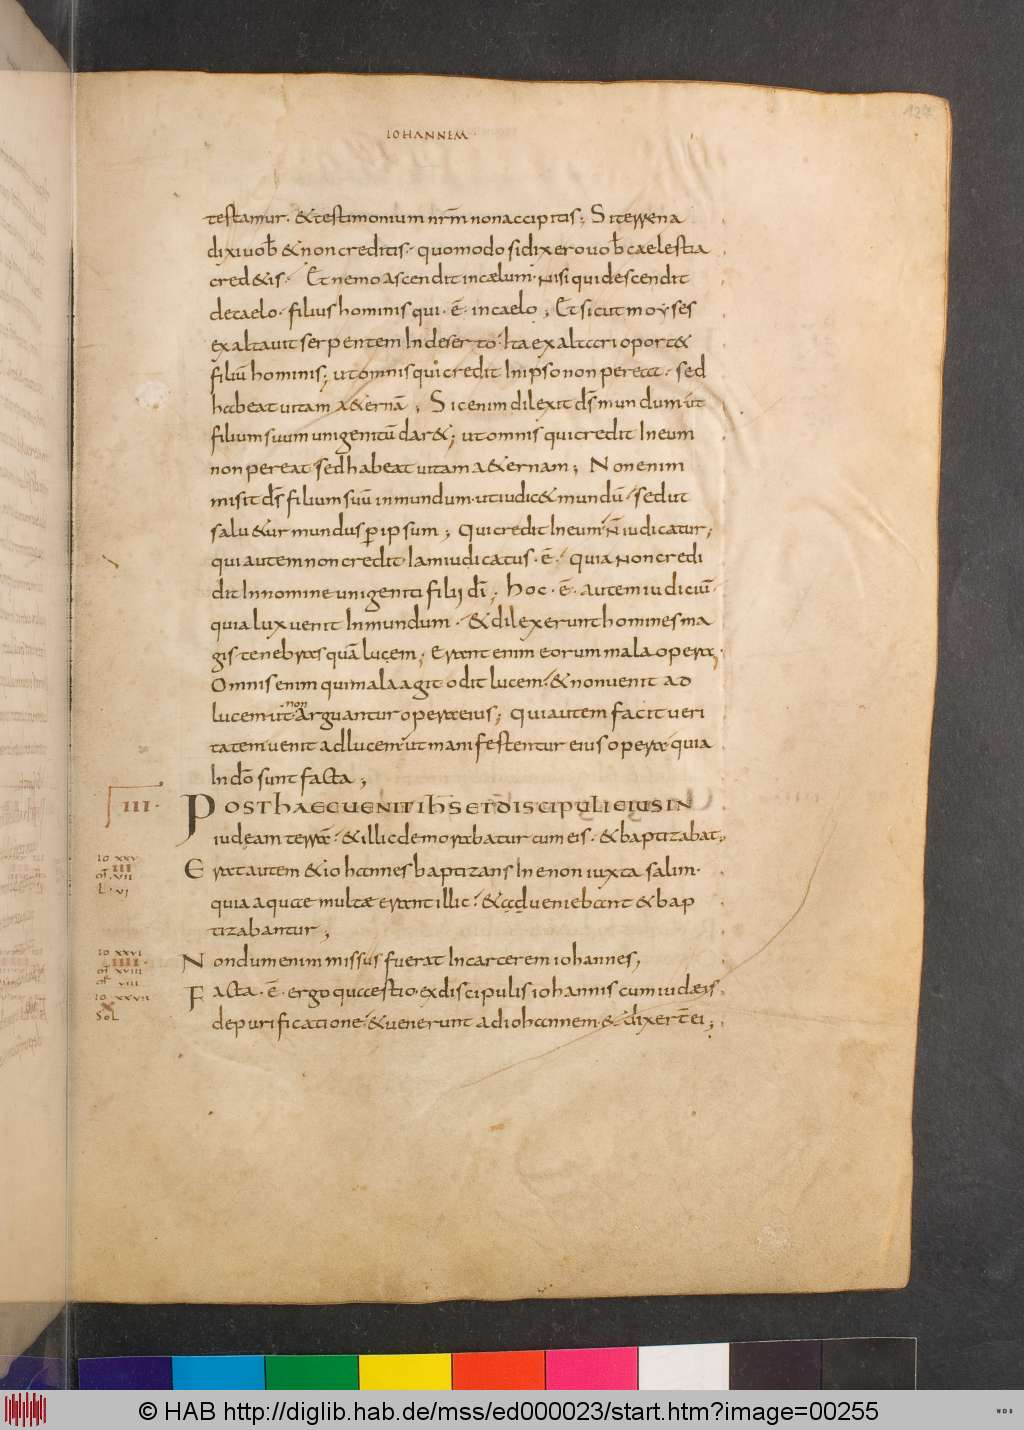 127
IOHANNEM·
testamur· & testimonium nr̄m non accipitis; Si terrena
dixi uob̄ & non creditis· quomodo si dixero uob̄ caelestia
cred&is· Et nemo ascendit in cælum· nisi qui descendit
de caelo· filius hominis qui· ē· in caelo; Et sicut moyses
exaltauit serpentem In deserto· Ita exaltari oport&
filiū hominis; ut omnis qui credit In ipso non pereat· sed
habeat uitam a&ernā; Sic enim dilexit d̄s mundum ut
filium suum unigenitū dar&; ut omnis qui credit In eum
non pereat sed habeat uitam a&ernam; Non enim
misit d̄s filium suū in mundum· ut iudic& mundū· sed ut
salu&ur mundus p̄ ipsum; Qui credit In eum· n̄ iudicatur;
qui autem non credit· Iam iudicatus· ē· quia non credi
dit In nomine unigeniti filij dī; Hoc· ē· autem iudiciū·
quia lux uenit In mundum· & dilexerunt homines ma
gis tenebras quā lucem; Erant enim eorum mala opera;
Omnis enim qui mala agit odit lucem· & non uenit ad
lucem· ut non Arguantur opera eius; qui autem facit ueri
tatem uenit ad lucem· ut manifestentur eius opera· quia
In dō sunt facta;
III· POST HAEC UENIT IH̄S ET DISCIPULI EIUS IN
iudęam terrā· & illic demorabatur cum eis· & baptizabat;
IO XXV
III
m̄t· VII
L· VI
Erat autem & iohannes baptizans In enon iuxta salim·
quia aquae multæ erant illic· & adueniebant & bap
tizabantur;
IO XXVI
IIII·
m̄t XVIII
m̄r VIII
Nondum enim missus fuerat In carcerem iohannes;
IO XXVII
X
SOL
Facta· ē· ergo quaestio· ex discipulis iohannis cum iudæis·
de purificatione· & uenerunt ad iohannem· & dixer̄t ei;
© HAB http://diglib.hab.de/mss/ed000023/start.htm?image=00255
WDB